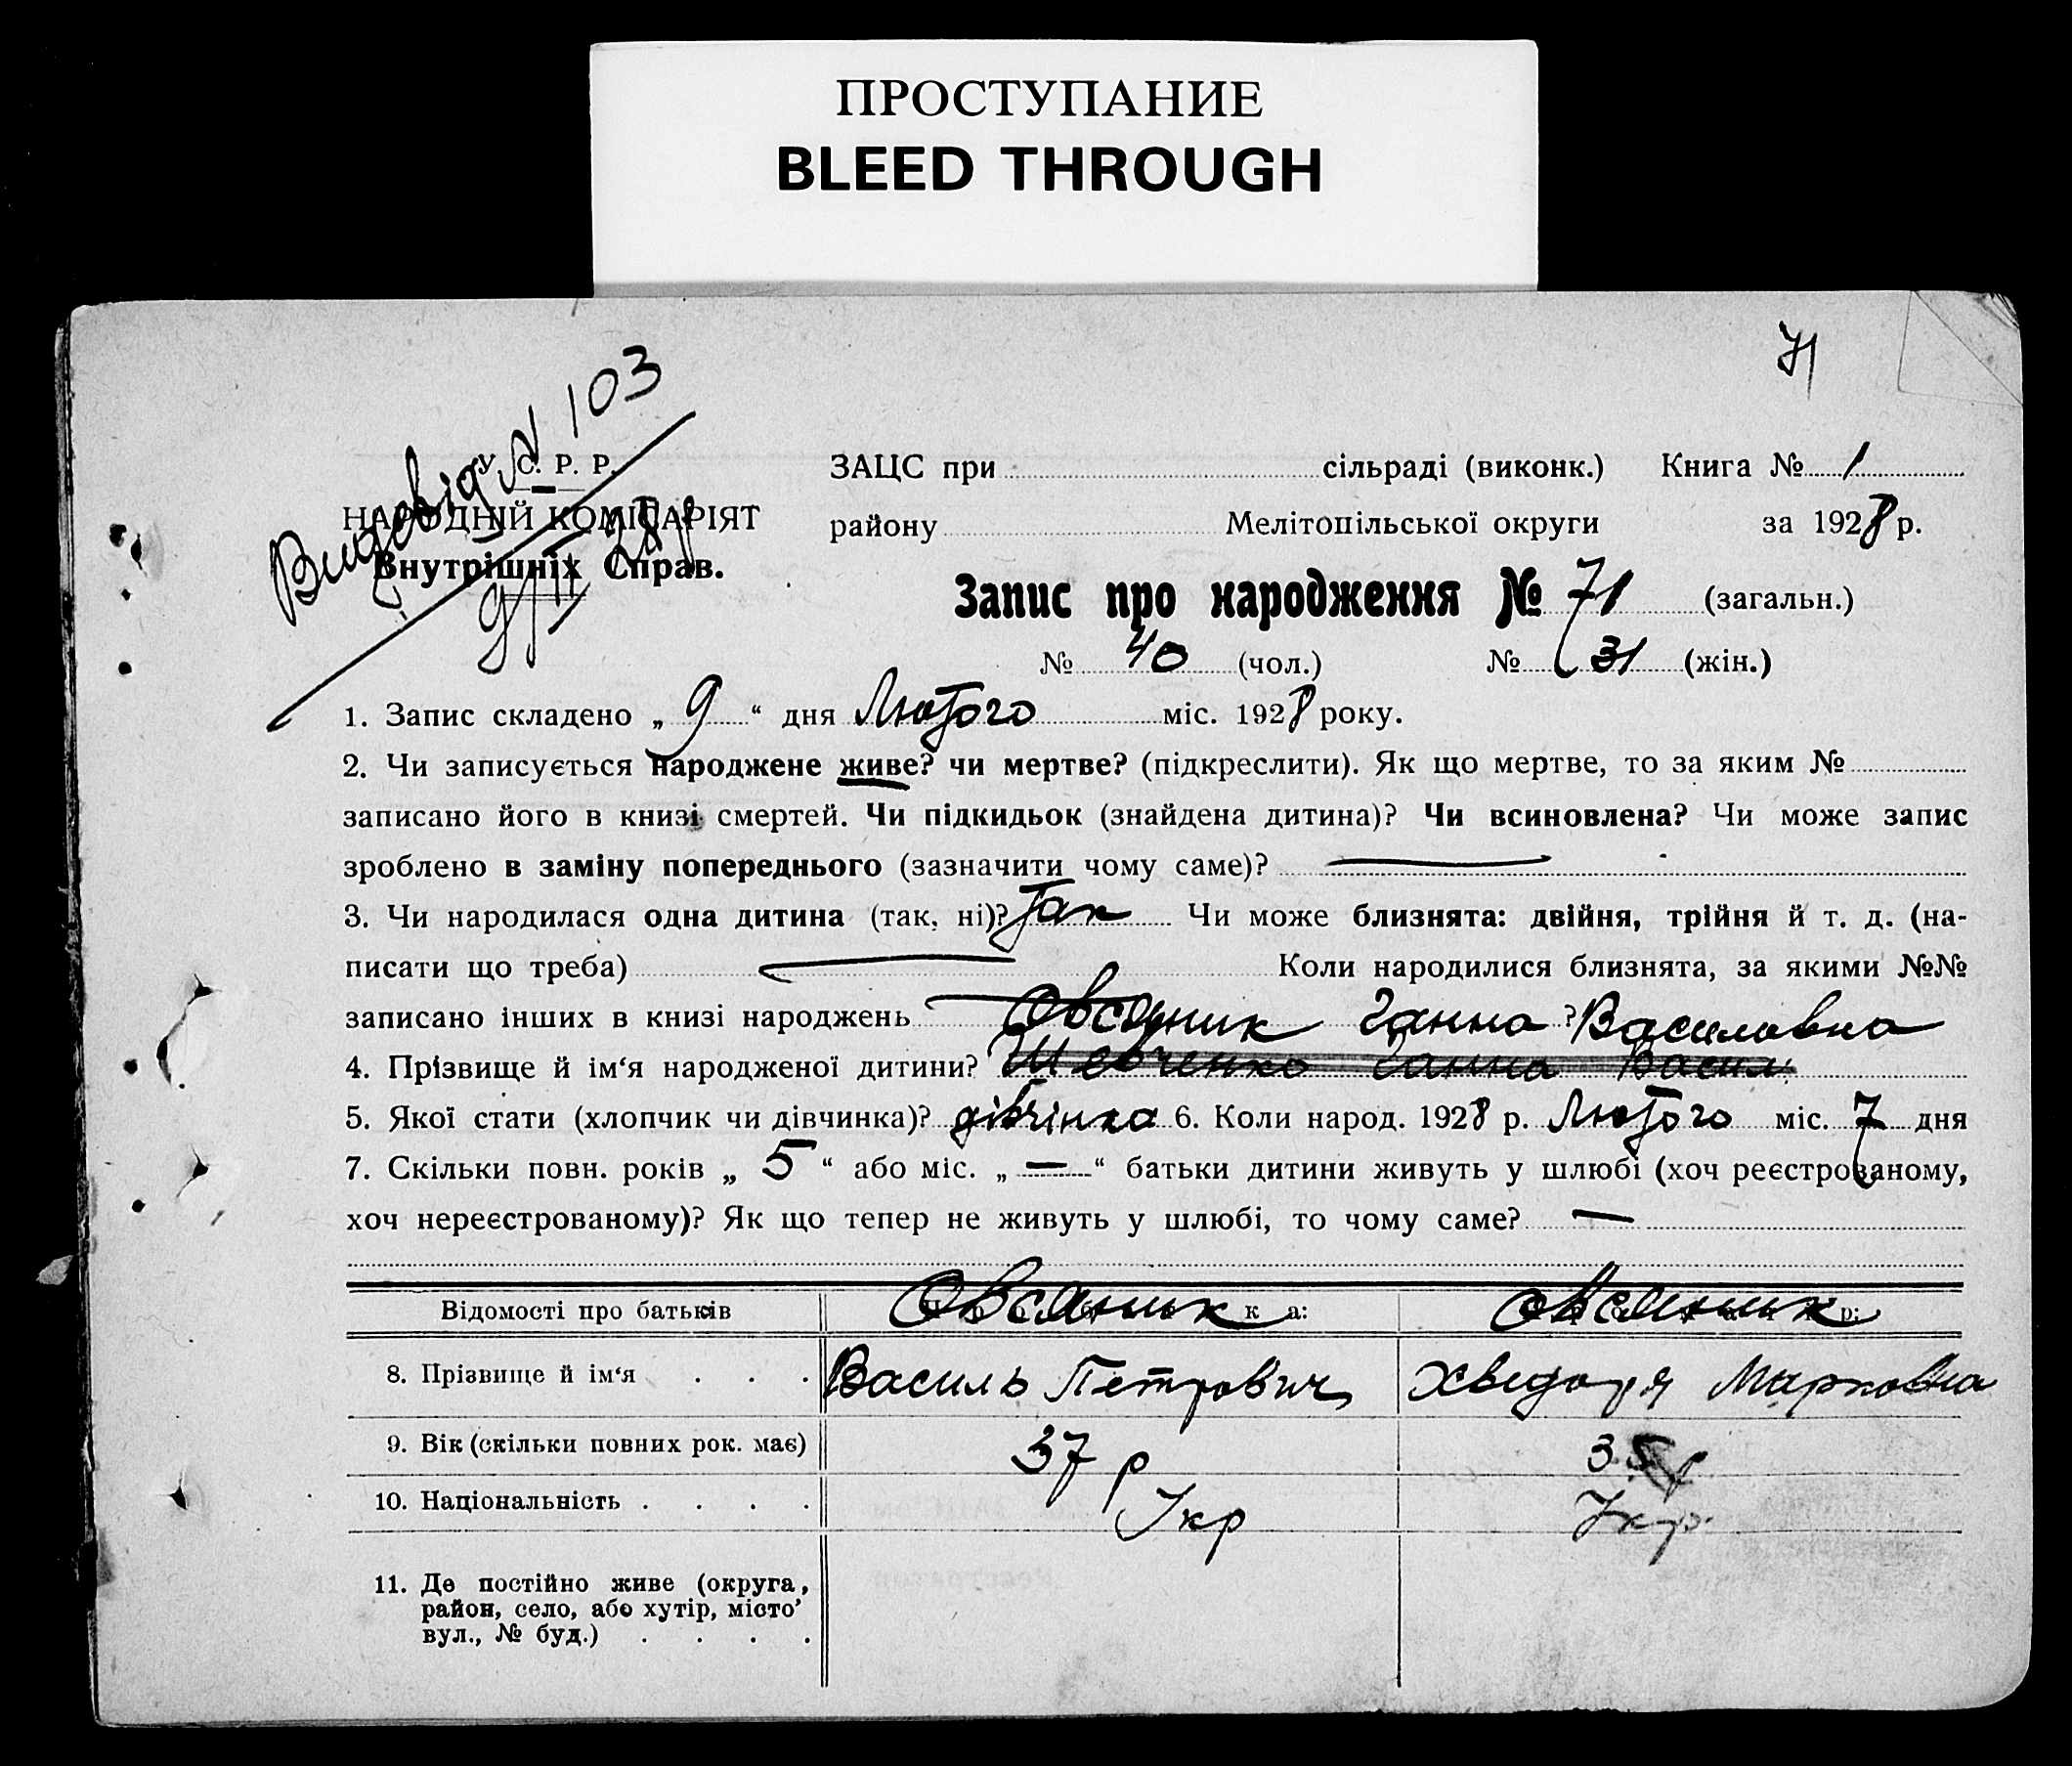 ПРОСТУПАНИЕ
BLEED THROUGH
71
№ 103
У. С. Р. Р.
НАРОДНІЙ КОМІСАРІЯТ
Внутрішніх Справ.
9/II 28 р
ЗАЦС при сільраді (виконк.) Книга № 1
району Мелітопільської округи за 1928 р.
Запис про народження № 71 (загальн.)
№ 40 (чол.) № 31 (жін.)
1. Запис складено „ 9 “ дня Лютого міс. 1928 року.
2. Чи записується народжене живе? чи мертве? (підкреслити). Як що мертве, то за яким №
записано його в книзі смертей. Чи підкидьок (знайдена дитина)? Чи всиновлена? Чи може запис
зроблено в заміну попереднього (зазначити чому саме)? —
3. Чи народилася одна дитина (так, ні)? Так Чи може близнята: двійня, трійня й т. д. (на-
писати що треба) — Коли народилися близнята, за якими №№
записано інших в книзі народжень — ?
Овсяник Ганна Василовна
4. Прізвище й ім‘я народженої дитини? Шевченко Ганна Васил
5. Якої стати (хлопчик чи дівчинка)? дівчінка 6. Коли народ. 1928 р. Лютого міс. 7 дня
7. Скільки повн. років „ 5 “ або міс. „ — “ батьки дитини живуть у шлюбі (хоч реєстрованому,
хоч нереєстрованому)? Як що тепер не живуть у шлюбі, то чому саме? —
Відомості про батьків Овсяник Овсяник
8. Прізвище й ім‘я . . . Василь Петрович Хведора Марковна
9. Вік (скільки повних рок. має) 37 р 35 р
10. Національність . . . . Укр Укр.
11. Де постійно живе (округа,
район, село, або хутір, місто’
вул., № буд.) . . . .